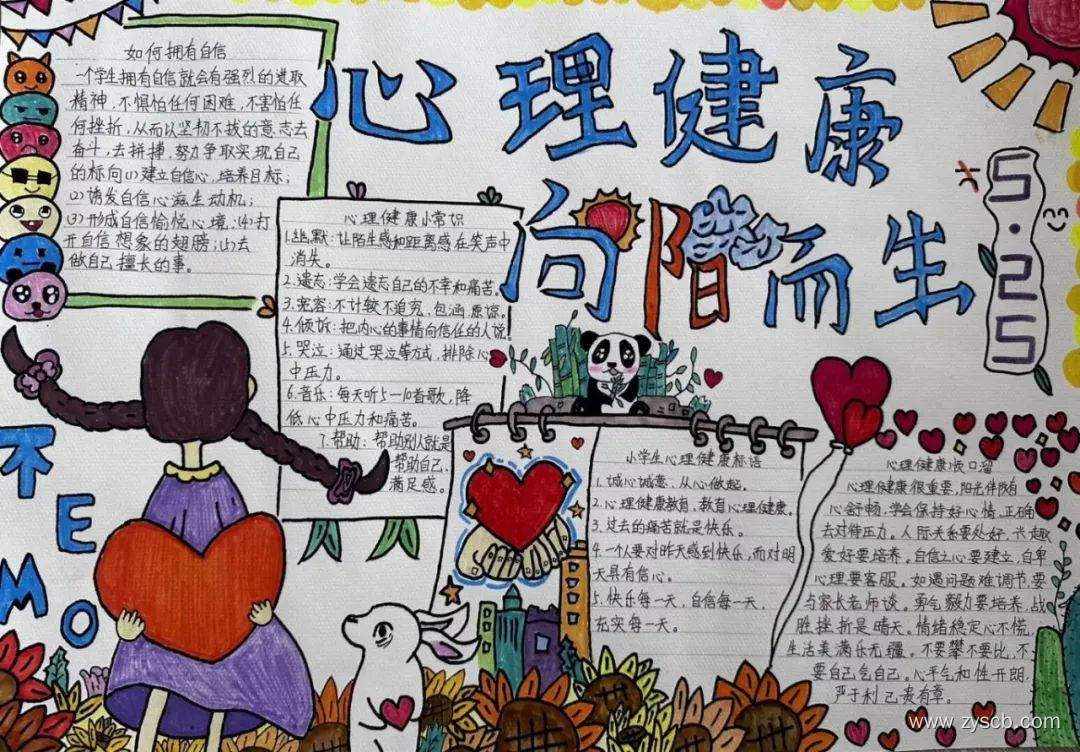 如何拥有自信
一个学生拥有自信就会有强烈的进取
精神，不惧怕任何困难，不害怕任
何挫折，从而以坚韧不拔的意志去
奋斗，去拼搏，努力争取实现自己
的标向(1)建立自信心，培养目标；
(2)诱发自信心滋生动机；
(3)形成自信愉悦心境；(4)打
开自信想象的翅膀；(5)去
做自己擅长的事。
心理健康
向阳而生
5·25
心理健康小常识
1.幽默：让陌生感和距离感在笑声中
消失。
2.遗忘：学会遗忘自己的不幸和痛苦。
3.宽容：不计较不追穷，包涵原谅。
4.倾诉：把内心的事情向信任的人说
5.哭泣：通过哭泣等方式，排除心
中压力。
6.音乐：每天听5一10首歌，降
低心中压力和痛苦。
7.帮助：帮助别人就是
帮助自己，
满足感。
不
E
M
O
小学生心理健康标语
1.诚心诚意，从心做起。
2.心理健康教育、教育心理健康。
3.过去的痛苦就是快乐。
4.一个人要对昨天感到快乐，而对明
天具有信心。
5.快乐每一天，自信每一天，
充实每一天。
心理健康顺口溜
心理健康很重要，阳光伴随有
心舒畅。学会保持好心情，正确
去对待压力。人际关系要处好，兴趣
爱好要培养。自信立心要建立，自卑
心理要客服。如遇问题难调节，要
与家长老师谈。勇气毅力要培养，战
胜挫折是晴天。情绪稳定心不慌，
生活美满乐无疆。不要攀不要比，不
要自己气自己。心平气和性开朗，
严于利己责有章。
www.zyscb.com